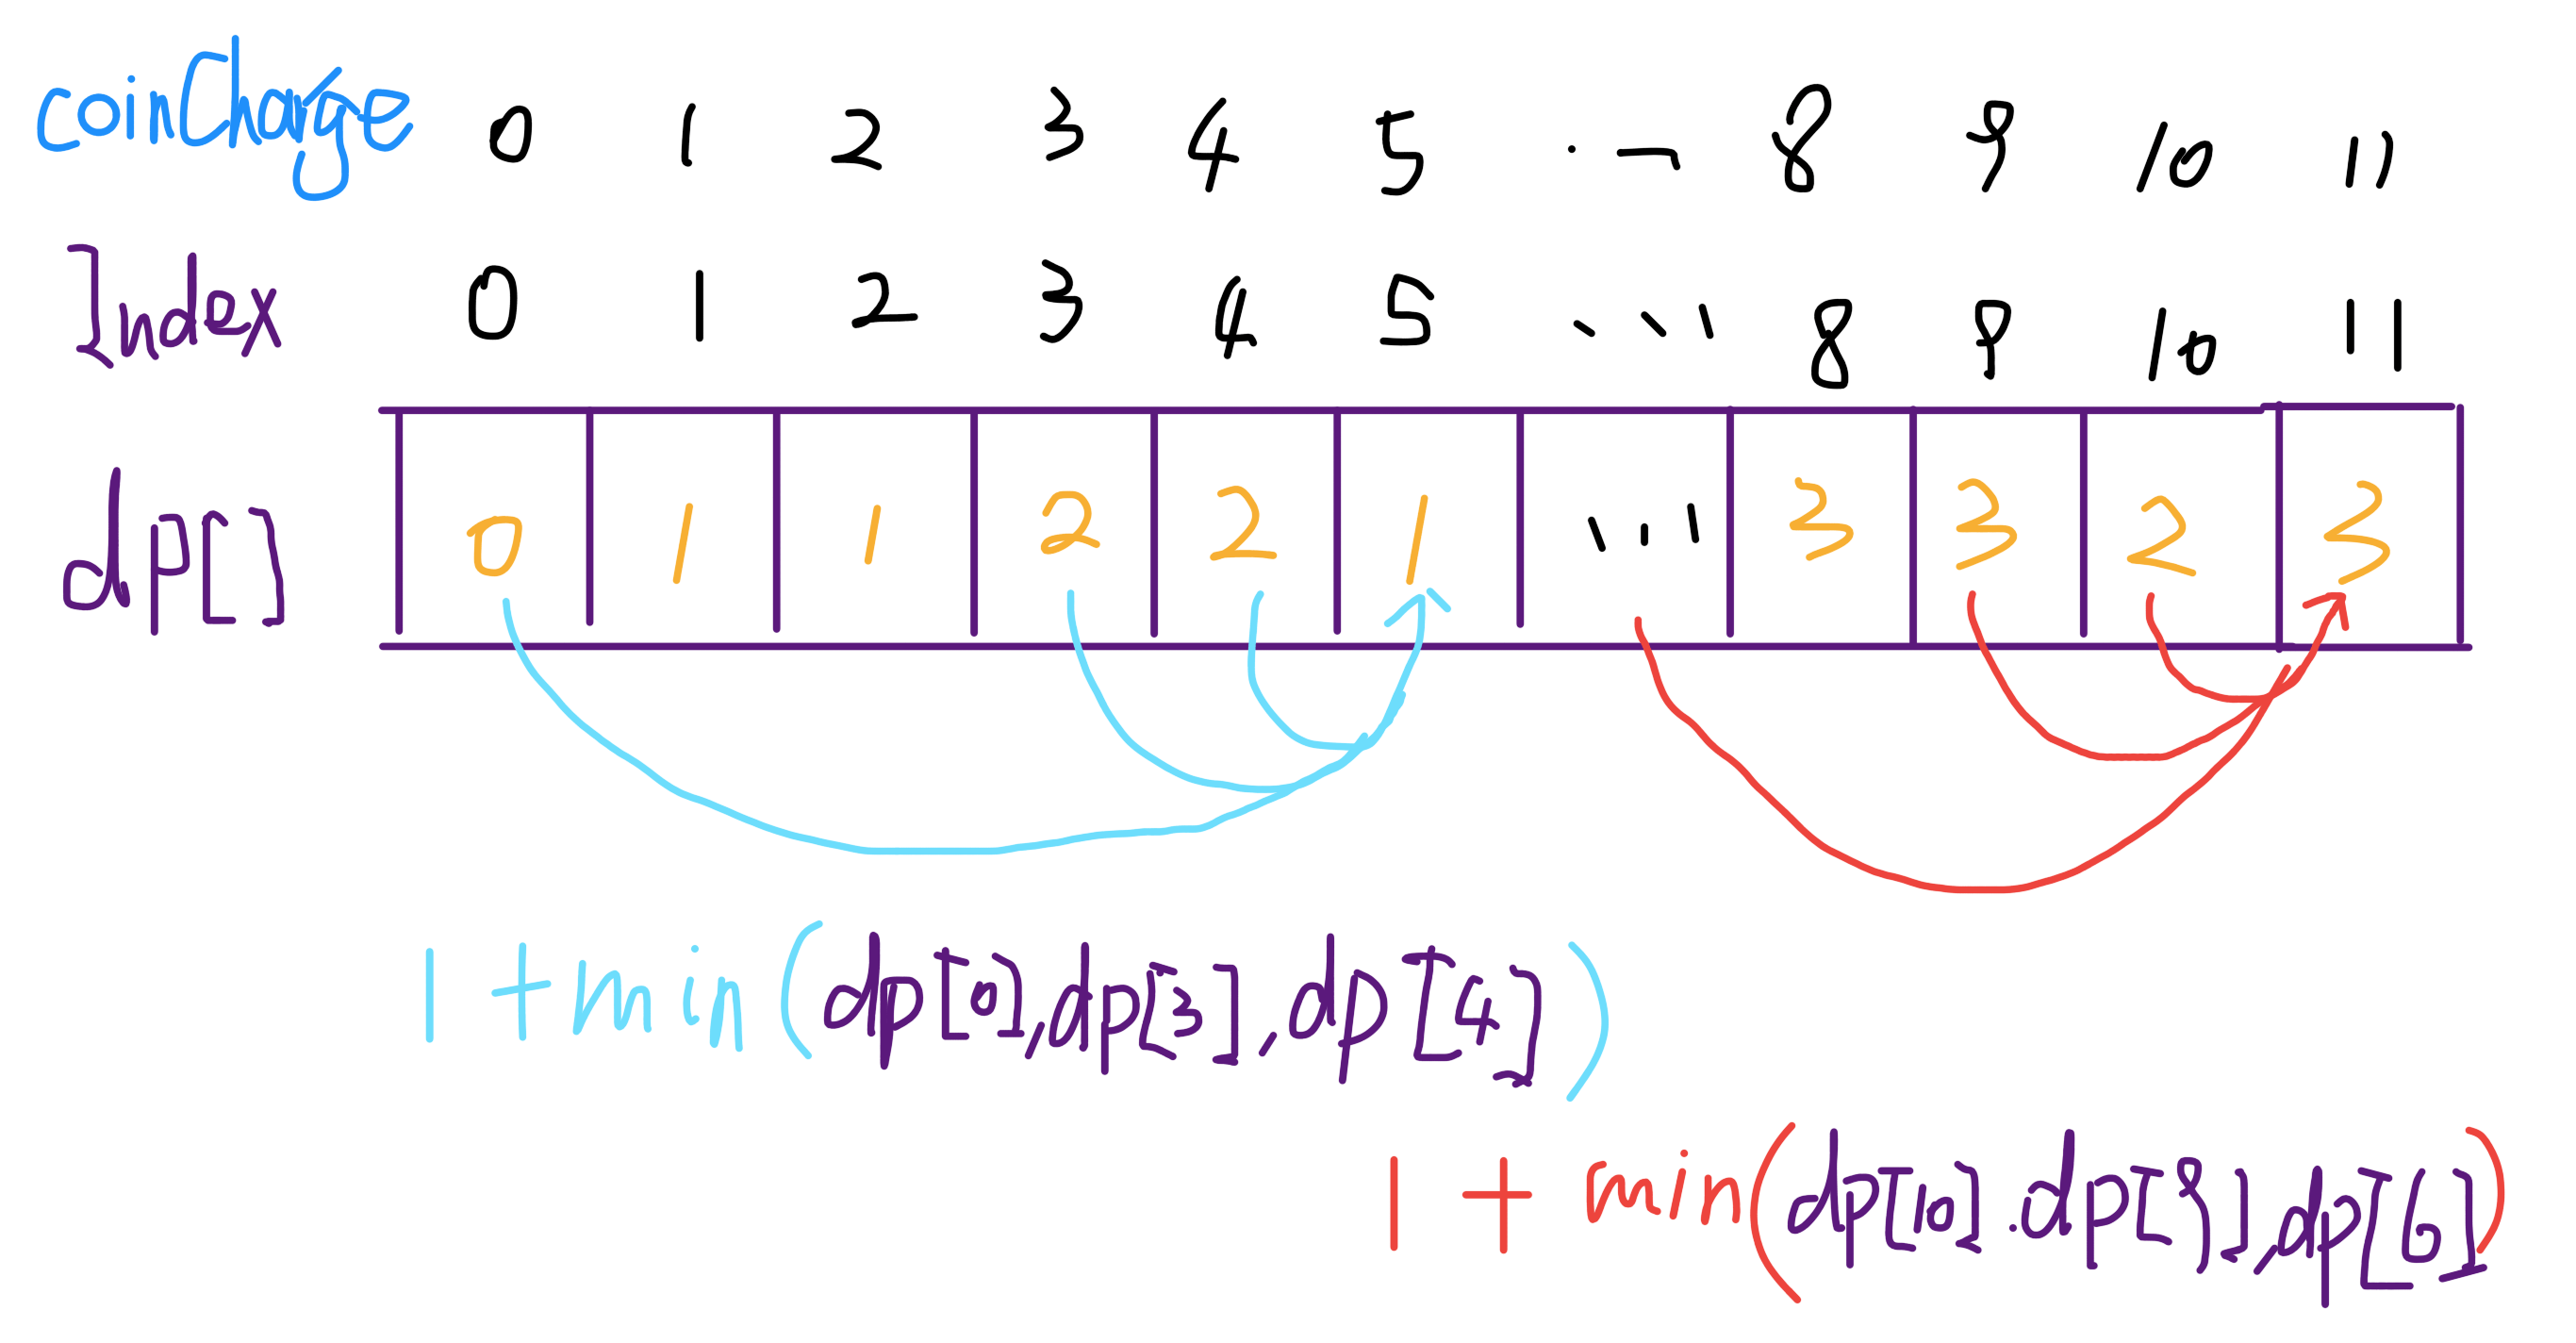 coinChange 0 1 2 3 4 5 ... 8 9 10 11
Index 0 1 2 3 4 5 ... 8 9 10 11
dp[] 0 1 1 2 2 1 ... 3 3 2 3
1 + min(dp[0],dp[3],dp[4])
1 + min(dp[10].dp[9],dp[6])